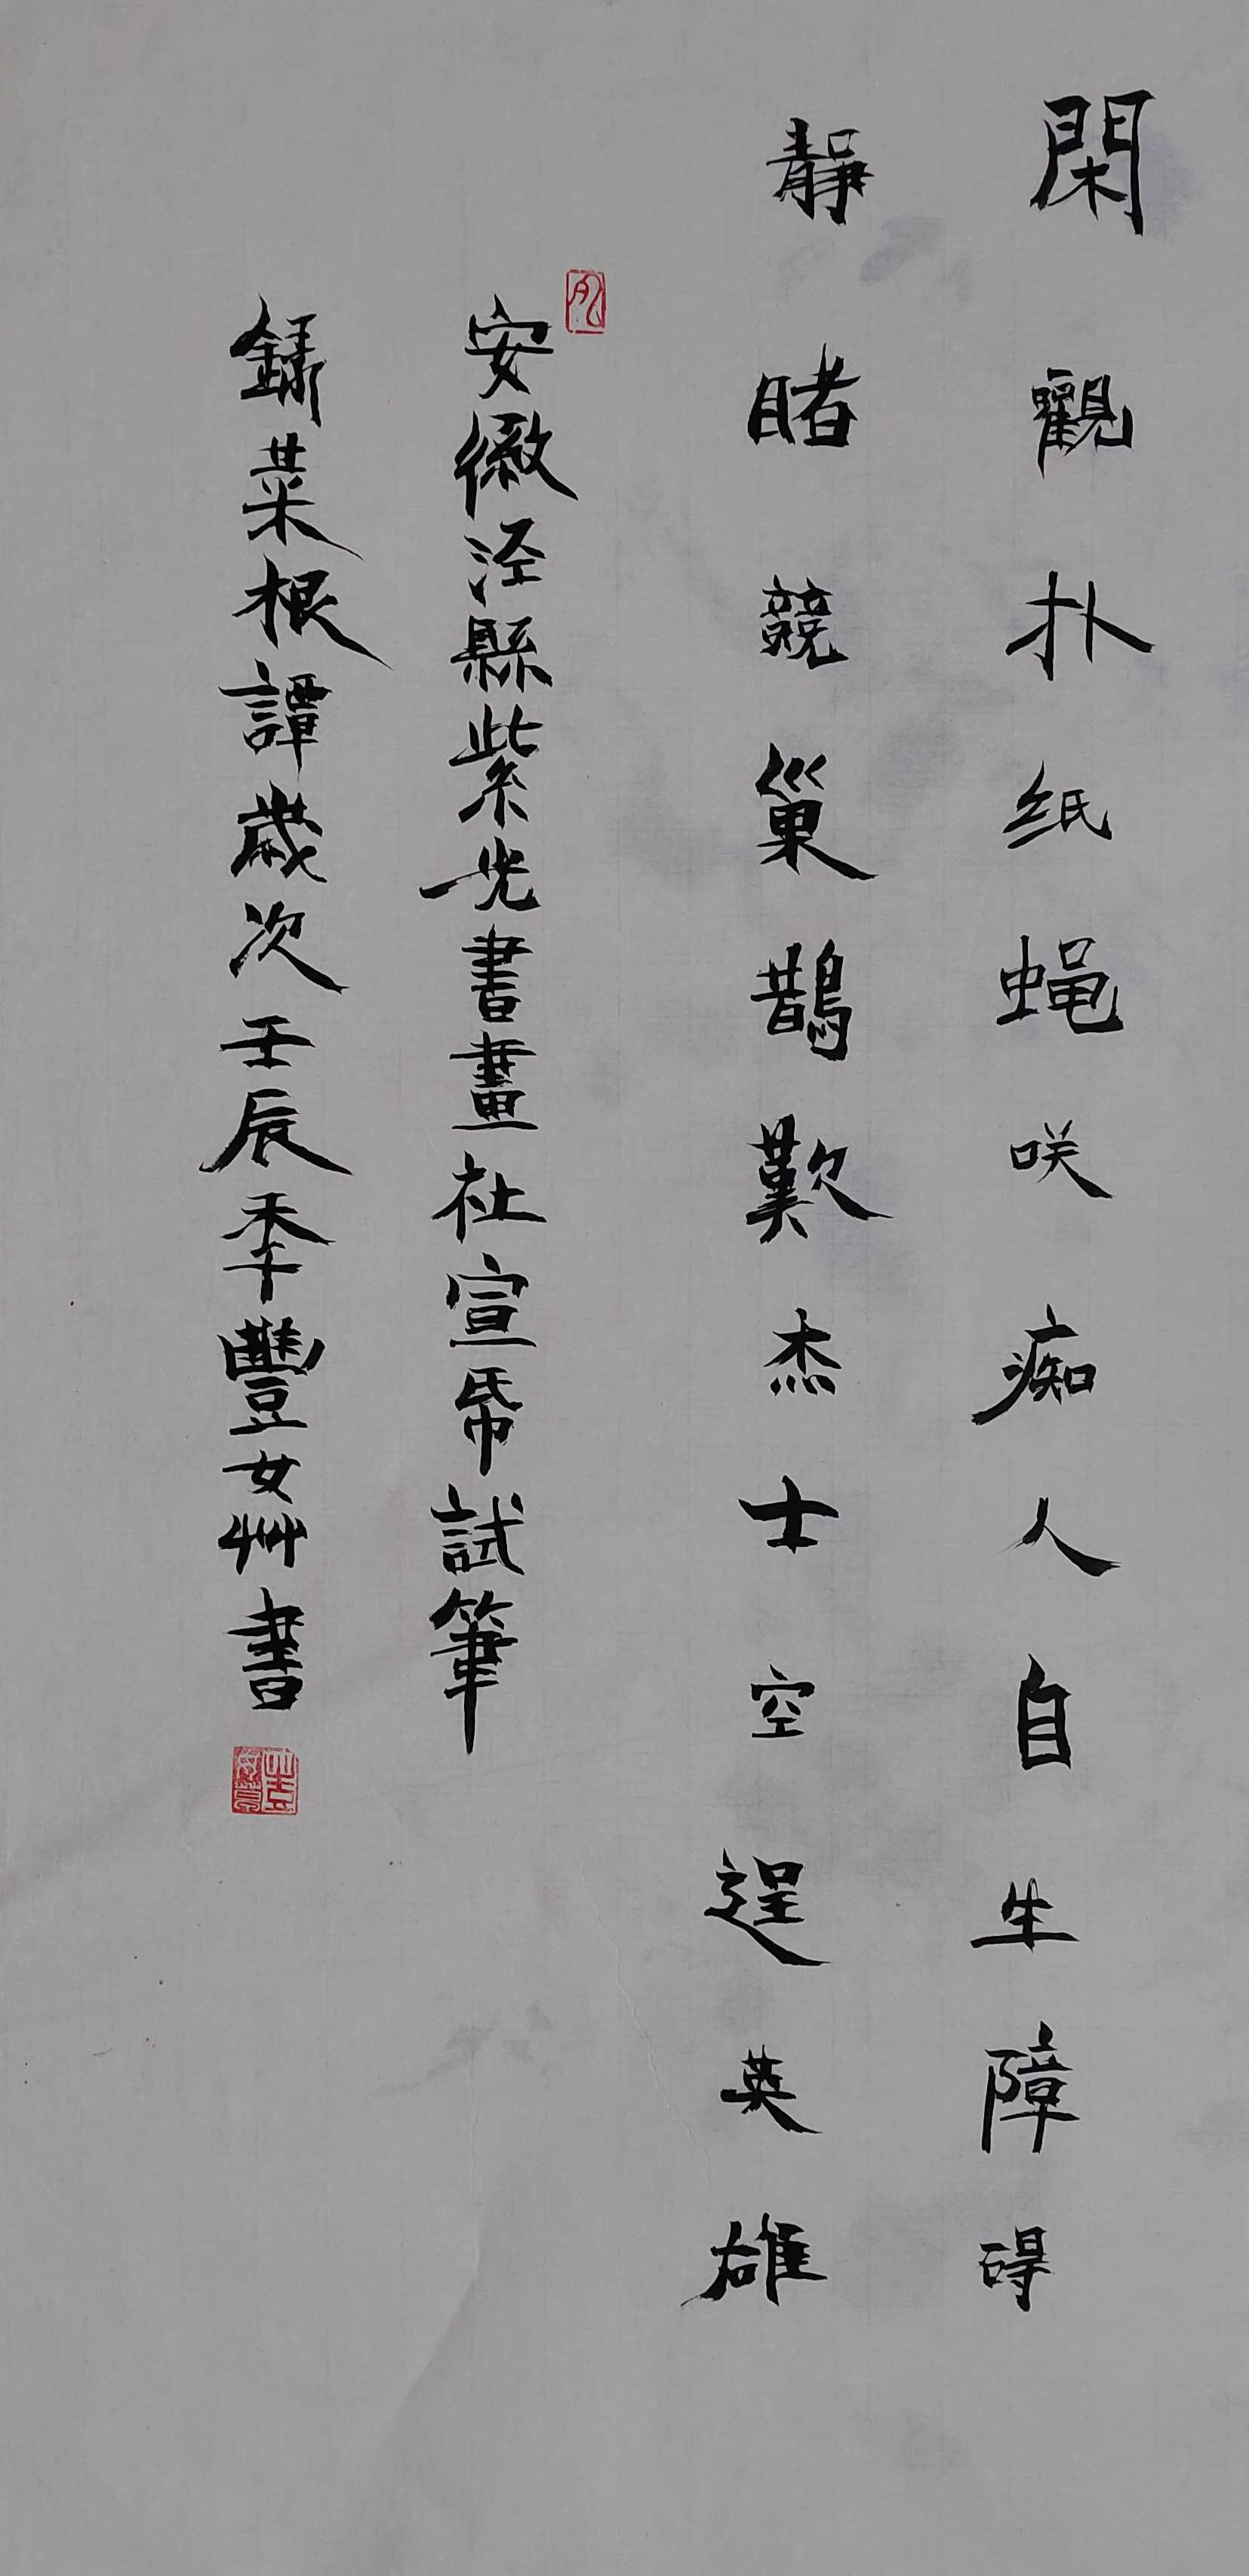 閑觀扑纸蝇咲痴人自生障碍
静睹競巢鵲歎杰士空逞英雄
安徽泾縣紫光書畫社宣帋試筆
録菜根譚歲次壬辰季豐女艸書